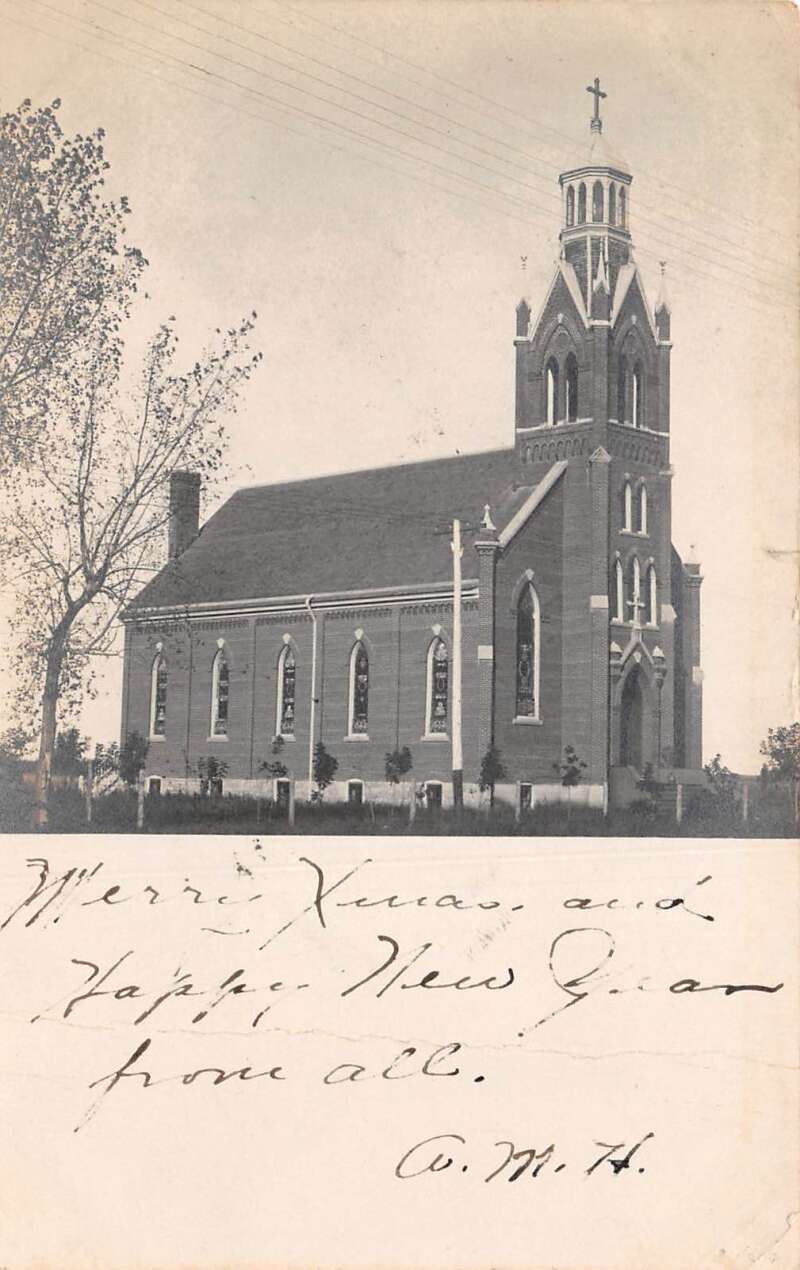 Merry Xmas. and
Happy New Year
from all.
A. M. H.